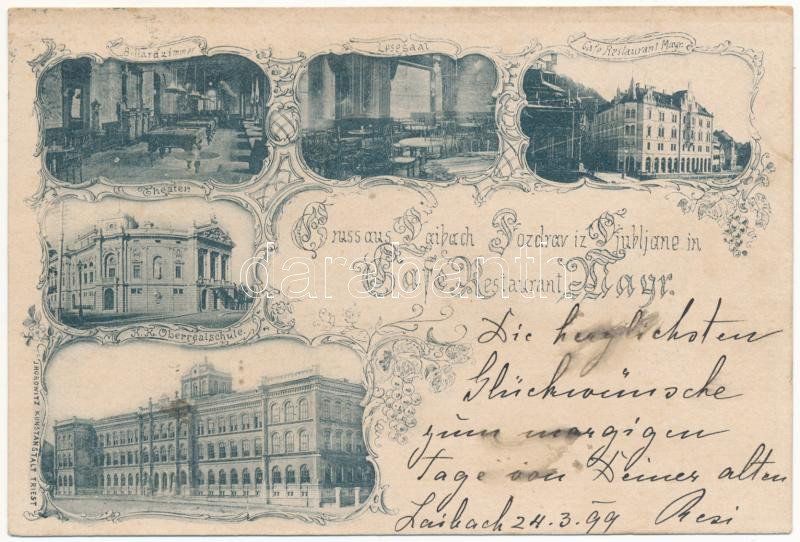 Billardzimmer
Lesesaal
Café Restaurant Mayr.
Theater
Gruss aus Laibach Pozdrav iz Ljubljane in
Café Restaurant Mayr.
darabanth.com
K. K. Oberrealschule.
HOROWITZ KUNSTANSTALT TRIEST
Die herzlichsten
Glückwünsche
zum morgigen
Tage von Deiner alten
Laibach 24.3.99 Resi